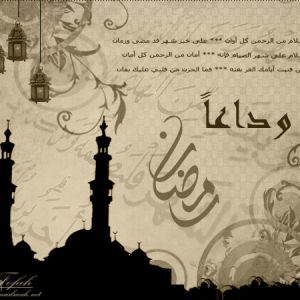 سلام من الرحمن كل أوان *** على خير شهر قد مضى وزمان
سلام على شهر الصيام فإنه *** أمان من الرحمن كل أمان
فنيت أيامك الغر بغتة *** فما الحزن من قلبي عليك بفان
وداعاً
رمضان